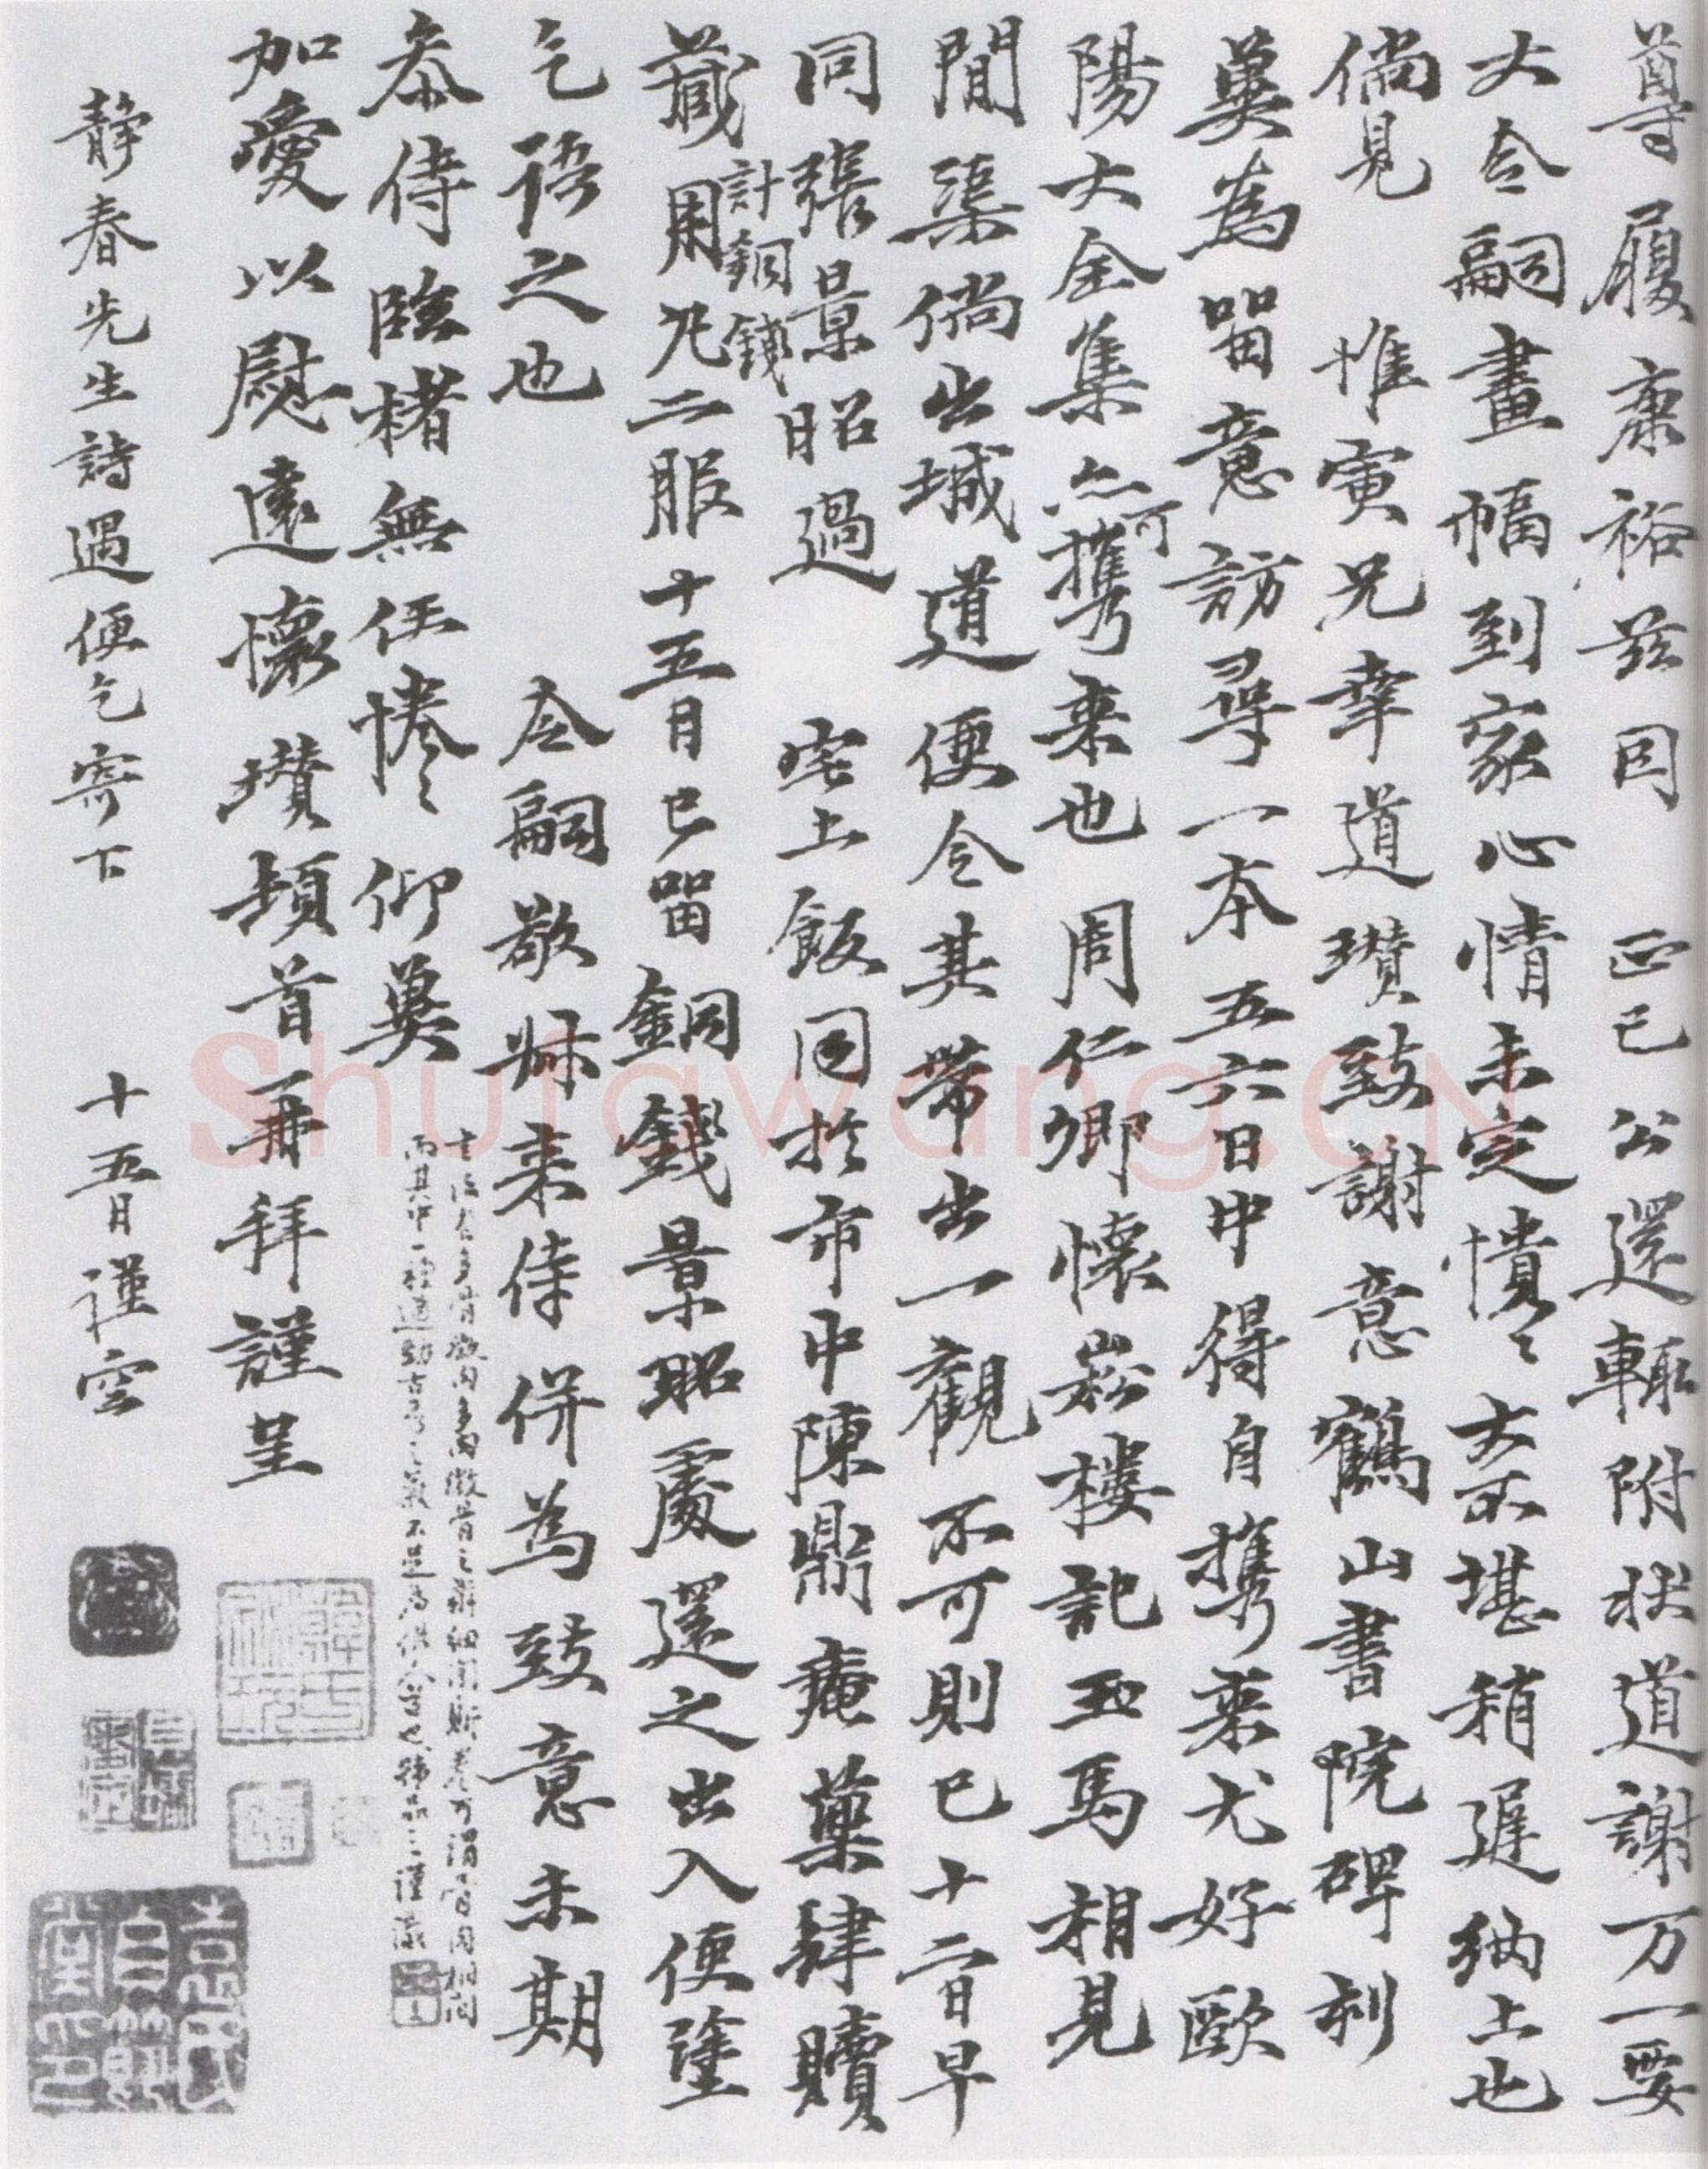 尊履康裕茲因　正己公還輒附狀道謝万一要
大令嗣畫幅到家心情未定憒〻大不堪稍遲納上也
倘見　惟寅兄幸道瓚致謝意鶴山書院碑刻
冀為留意訪尋一本五六日中得自携來尤好歐
陽大全集亦可携来也周仁卿懷嵩樓記五馬相見
間渠倘出城道便令其帶出一觀不可則已十二日早
同張景昭過　宅上飯因於市中陳鼎菴藥肆贖
藏用丸二服十五月已留銅錢景昭處還之出入便塗
計銅錢
乞語之也　令嗣敬叔来侍併為致意未期
參侍臨楮無任惓〻仰冀
加愛以慰遠懷瓚頓首再拜謹呈
靜春先生詩遇便乞寄下　十五日謹空
Shufawang.CN